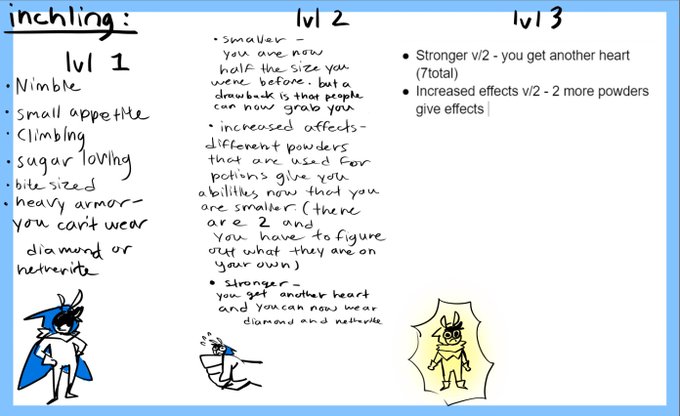 inchling:
lvl 1
• Nimble
• small appetite
• Climbing
• sugar loving
• bite sized
• heavy armor-
you can't wear
diamond or
netherite
lvl 2
• smaller -
you are now
half the size you
were before. but a
drawback is that people
can now grab you
• increased affects-
different powders
that are used for
potions give you
abilities now that you
are smaller. (there
are 2 and
you have to figure
out what they are on
your own)
• stronger -
you get another heart
and you can now wear
diamond and netherite
lvl 3
● Stronger v/2 - you get another heart
(7total)
● Increased effects v/2 - 2 more powders
give effects